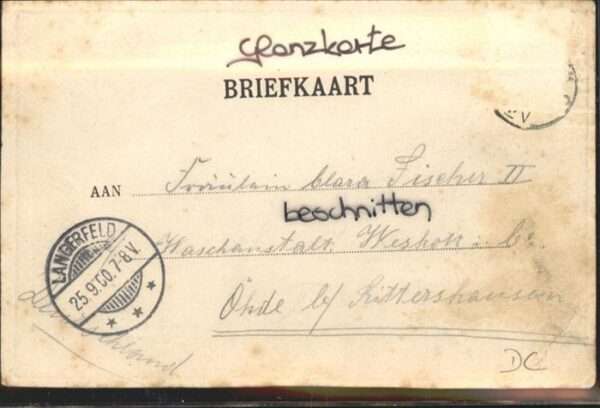 Glanzkarte
BRIEFKAART
AAN Fräulein Clara Fischer II
beschnitten
Waschanstalt Weskott & Co.
Öhde b/ Rittershausen
LANGERFELD
25.9.00.7-8V.
Deutschland
DC